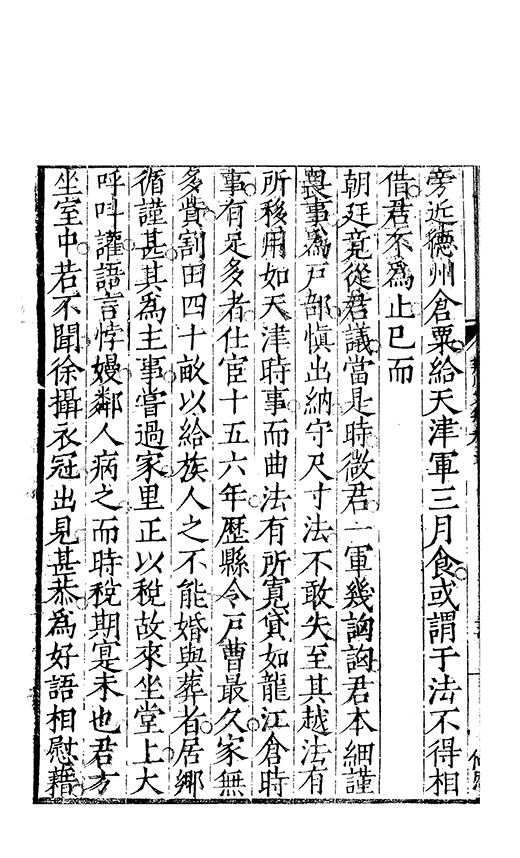 旁近德州倉粟給天津軍三月食或謂于法不得相
借君不為止已而
朝廷竟從君議當是時微君一軍幾訩訩君本細謹
畏事為戶部慎出納守尺寸法不敢失至其越法有
所移用如天津時事而曲法有所寬貸如龍江倉時
事有足多者仕宦十五六年歷縣令戶曹最久家無
多貲割田四十畝以給族人之不能婚與葬者居鄉
循謹甚其為主事嘗過家里正以稅故來坐堂上大
呼叫讙語言悖嫚鄰人病之而時稅期寔未也君方
坐室中若不聞徐攝衣冠出見甚恭為好語相慰藉